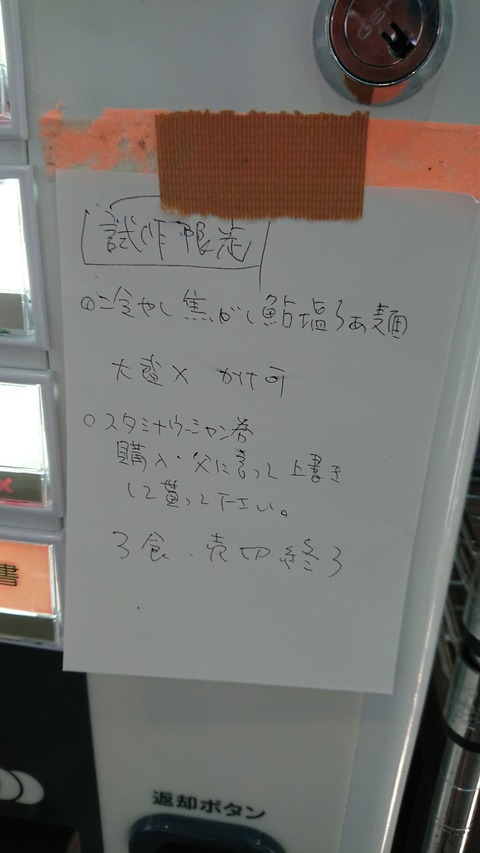 試作限定
○冷やし焦がし鮎塩らぁ麺
大盛× かけ可
○スタミナウーシャン券
購入・父に言って上書き
して貰って下さい。
3食・売切終了
書
返却ボタン